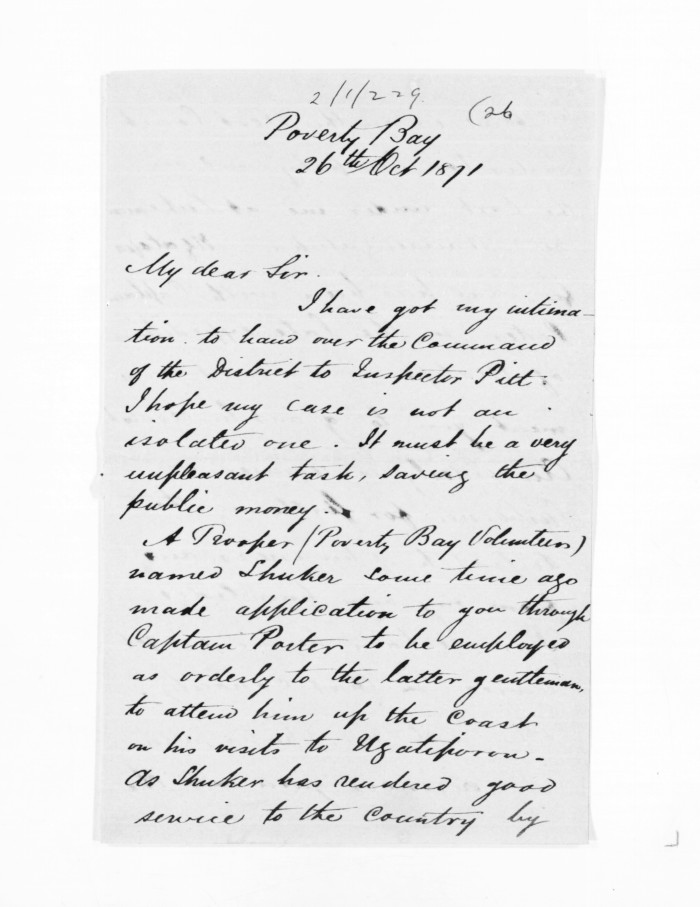 2/1/229.
(26
Poverty Bay
26th Oct 1871
My dear Sir.
I have got my intima-
tion to hand over the Command
of the District to Inspector Pitt.
I hope my case is not an
isolated one. It must be a very
unpleasant task, saving the
public money.
A Trooper (Poverty Bay Volunteers)
named Shuker some time ago
made application to you through
Captain Porter to be employed
as orderly to the latter gentleman,
to attend him up the Coast
on his visits to Ngatiporou.
As Shuker has rendered good
service to the country by